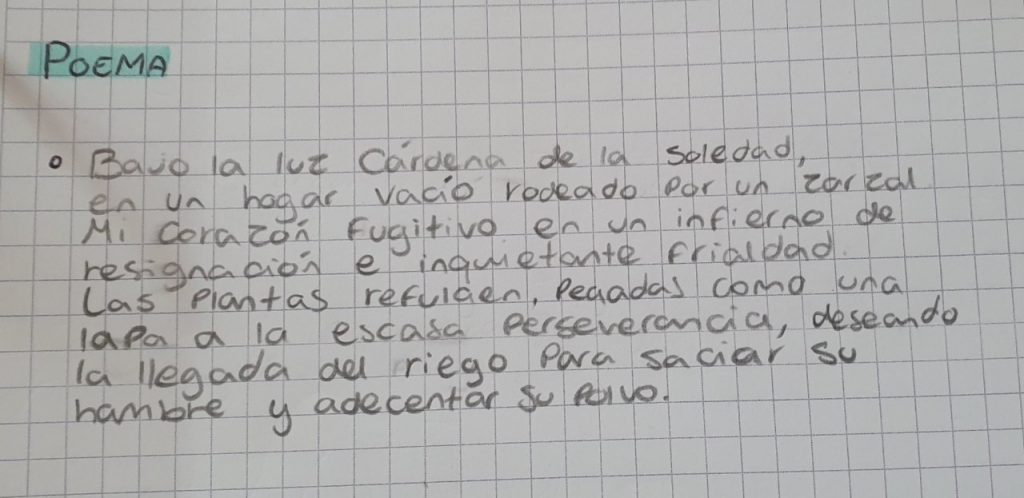 POEMA
Bajo la luz Cárdena de la soledad,
en un hogar vacío rodeado por un zarzal
Mi Corazón Fugitivo en un infierno de
resignación e inquietante frialdad.
Las Plantas refulgen, Pegadas como una
lapa a la escasa perseverancia, deseando
la llegada del riego Para saciar su
hambre y adecentar su polvo.